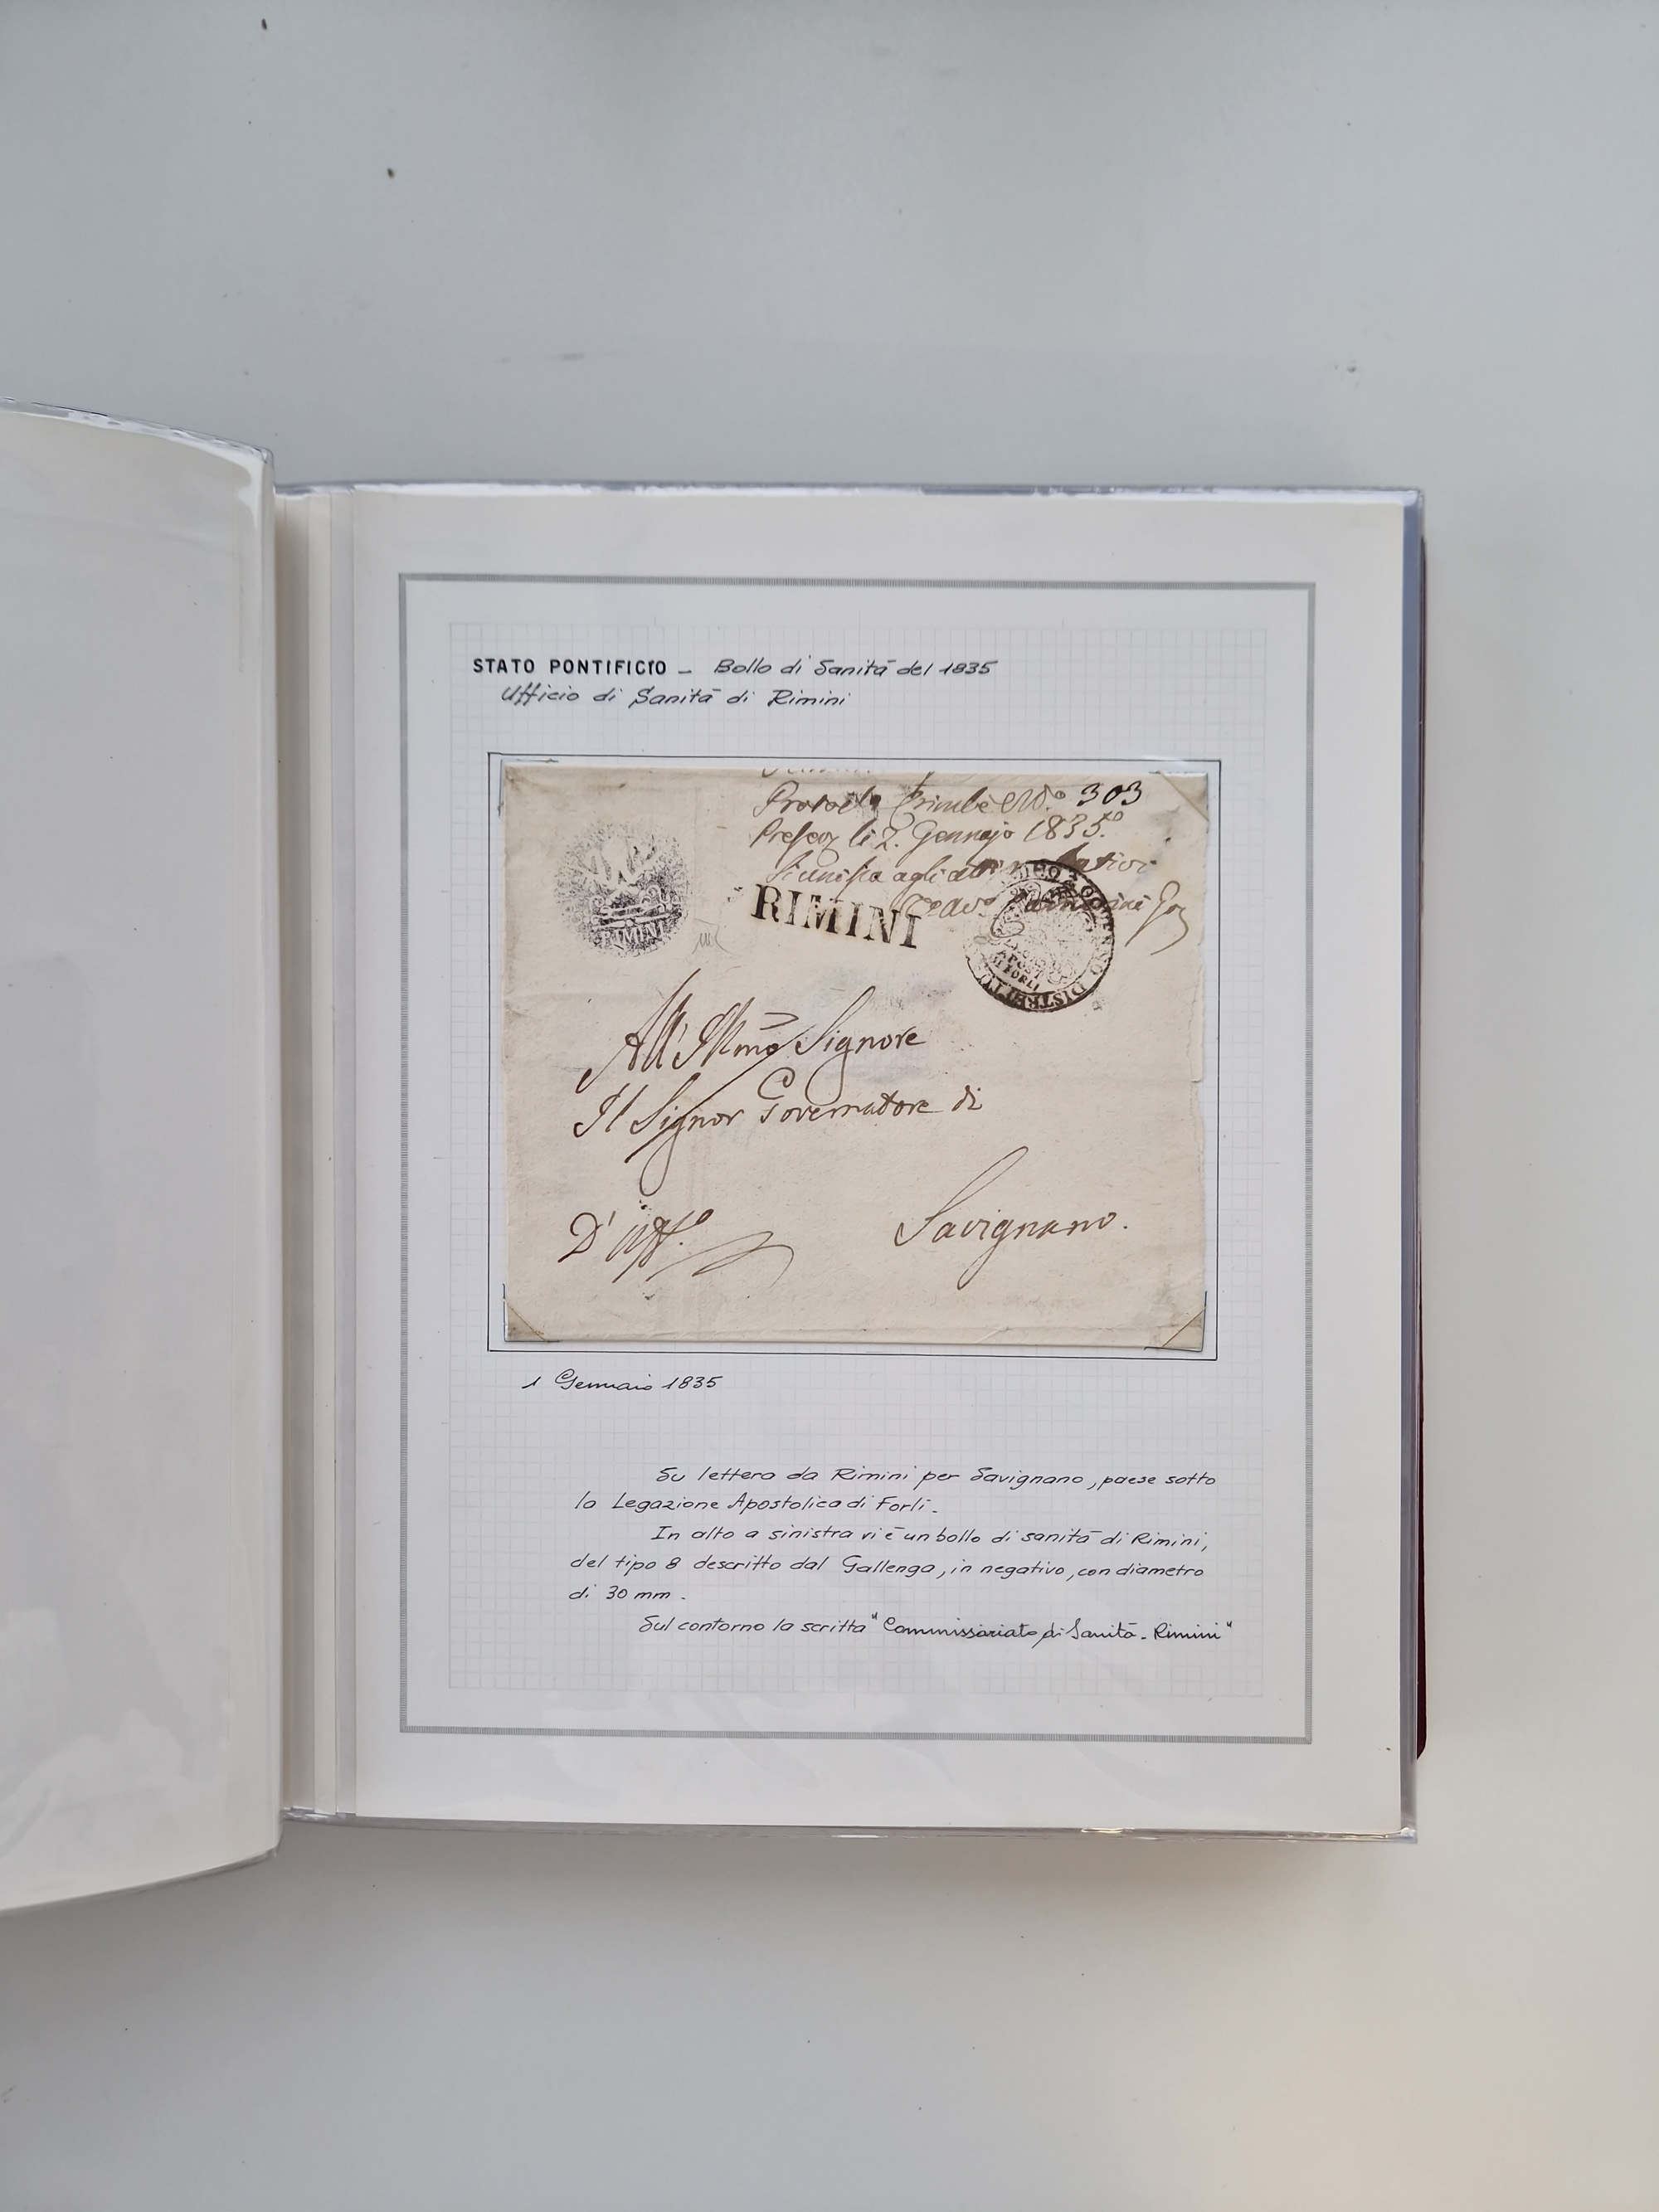 STATO PONTIFICIO - Bollo di Sanità del 1835
Ufficio di Sanità di Rimini
N.° 303
li 2. Gennajo 1835.
agli atti
RIMINI
RIMINI
APOST
DI FORLI
DISTRETTU
All' Illmo Signore
Il Signor Governatore di
Savignano.
D' Uff.°
1 Gennaio 1835
Su lettera da Rimini per Savignano, paese sotto
la Legazione Apostolica di Forlì.
In alto a sinistra vi è un bollo di sanità di Rimini,
del tipo 8 descritto dal Gallenga, in negativo, con diametro
di 30 mm.
Sul contorno la scritta "Commissariato di Sanità - Rimini"